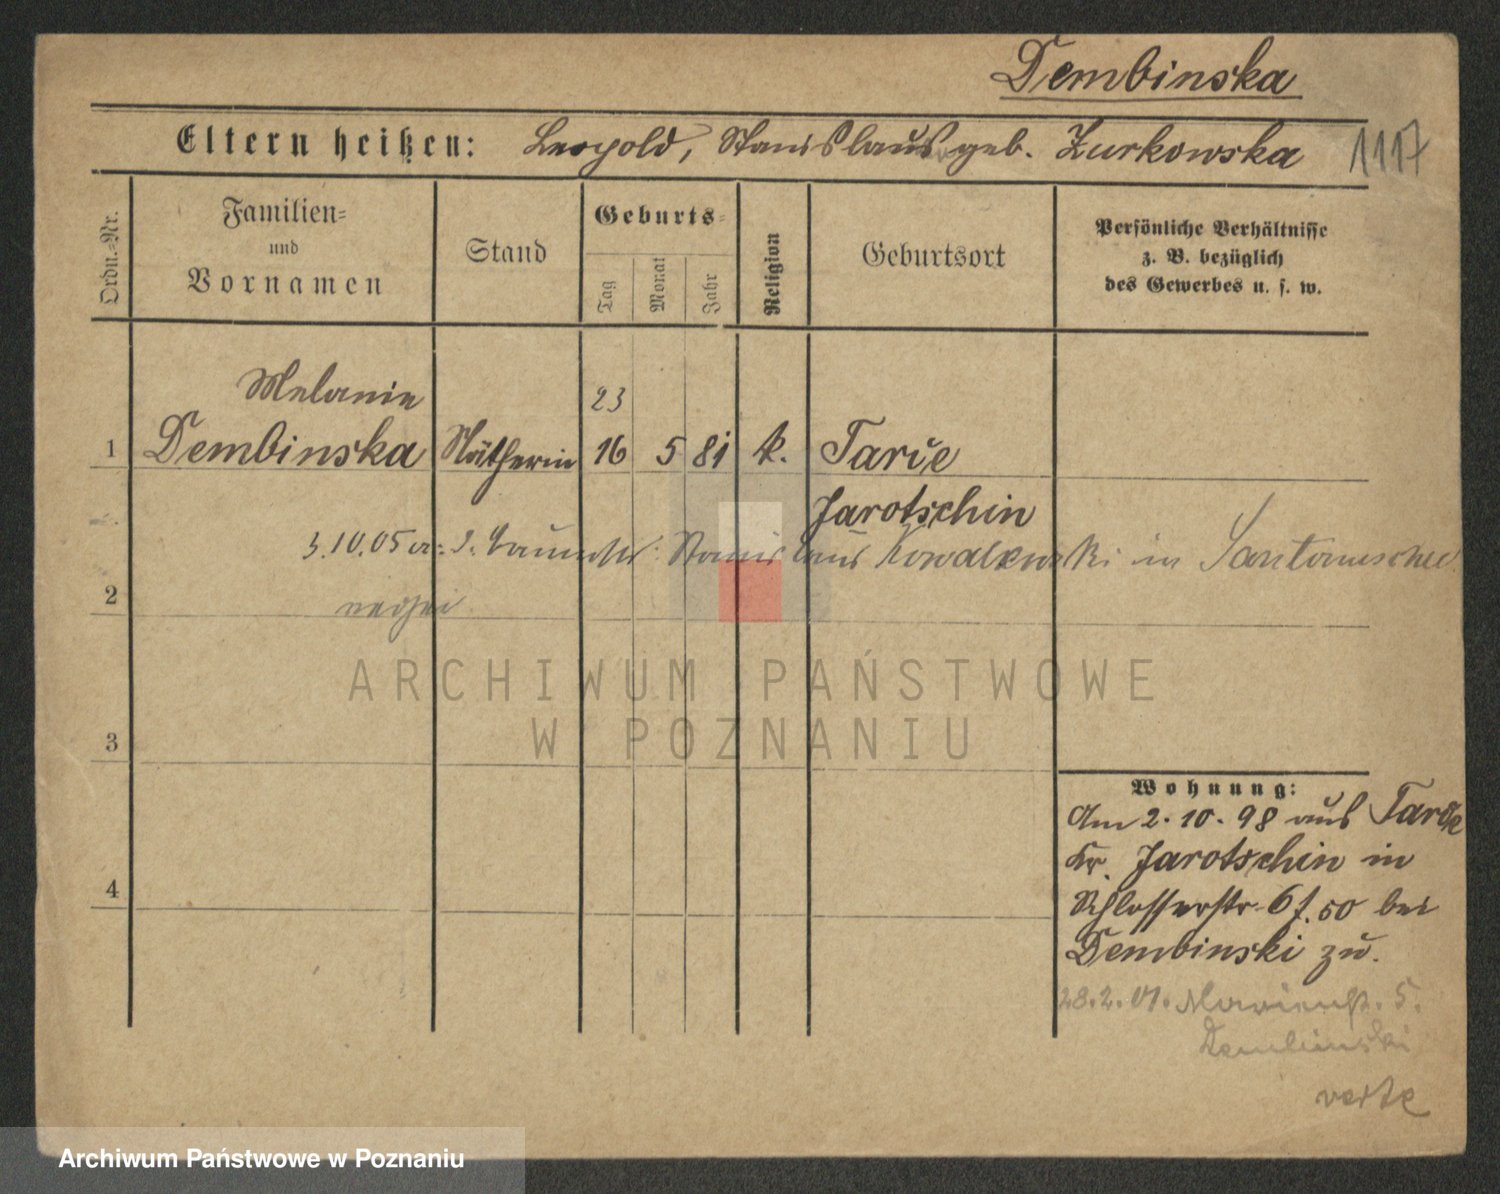 Dembinska
Eltern heißen: Leopold, Stanislaus geb. Zurkowska 1117
Ordn.-Nr.
Familien- und Vornamen
Stand
Geburts-
Tag
Monat
Jahr
Religion
Geburtsort
Persönliche Verhältnisse
z. B. bezüglich
des Gewerbes u. s. w.
Melanie 23
1 Dembinska Nätherin 16 5 81 k. Tarce
Jarotschin
3.10.05 Stanislaus Kowalewski in
2
3
4
Wohnung:
Am 2.10.98 aus Tarce
Kr. Jarotschin in
Schlosserstr. 6 f. 50 bei
Dembinski zu.
28.2.01. Marienstr. 5.
Dembinski
verte
ARCHIWUM PAŃSTWOWE
W POZNANIU
Archiwum Państwowe w Poznaniu